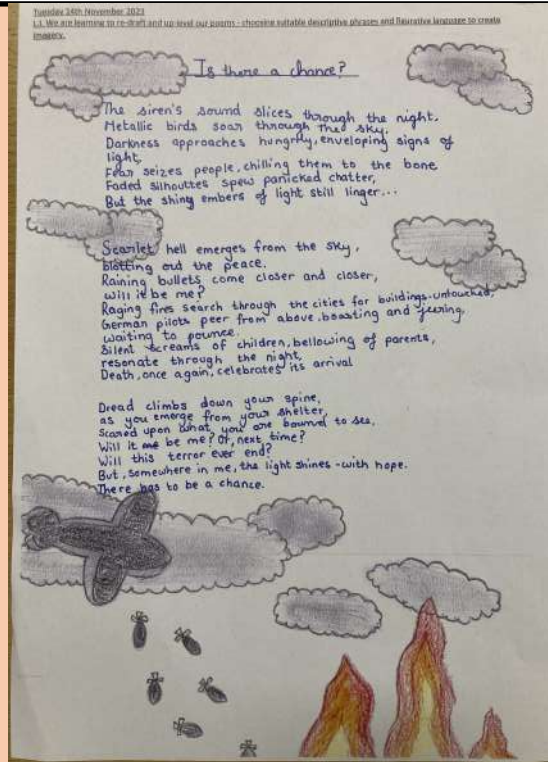 Tuesday 14th November 2023
L.I. We are learning to re-draft and up-level our poems - choosing suitable descriptive phrases and figurative language to create
imagery.
Is there a chance?
The siren's sound slices through the night.
Metallic birds soar through the sky.
Darkness approaches hungrily, enveloping signs of
light,
Fear seizes people, chilling them to the bone
Faded silhouttes spew panicked chatter,
But the shiny embers of light still linger...
Scarlet hell emerges from the sky,
blotting out the peace.
Raining bullets come closer and closer,
will it be me?
Raging fires search through the cities for buildings-untouched,
German pilots peer from above, boasting and jeering,
waiting to pounce.
Silent screams of children, bellowing of parents,
resonate through the night,
Death, once again, celebrates its arrival
Dread climbs down your spine,
as you emerge from your shelter,
Scared upon what you are bound to see,
Will it be me? Or, next time?
Will this terror ever end?
But, somewhere in me, the light shines - with hope.
There has to be a chance.